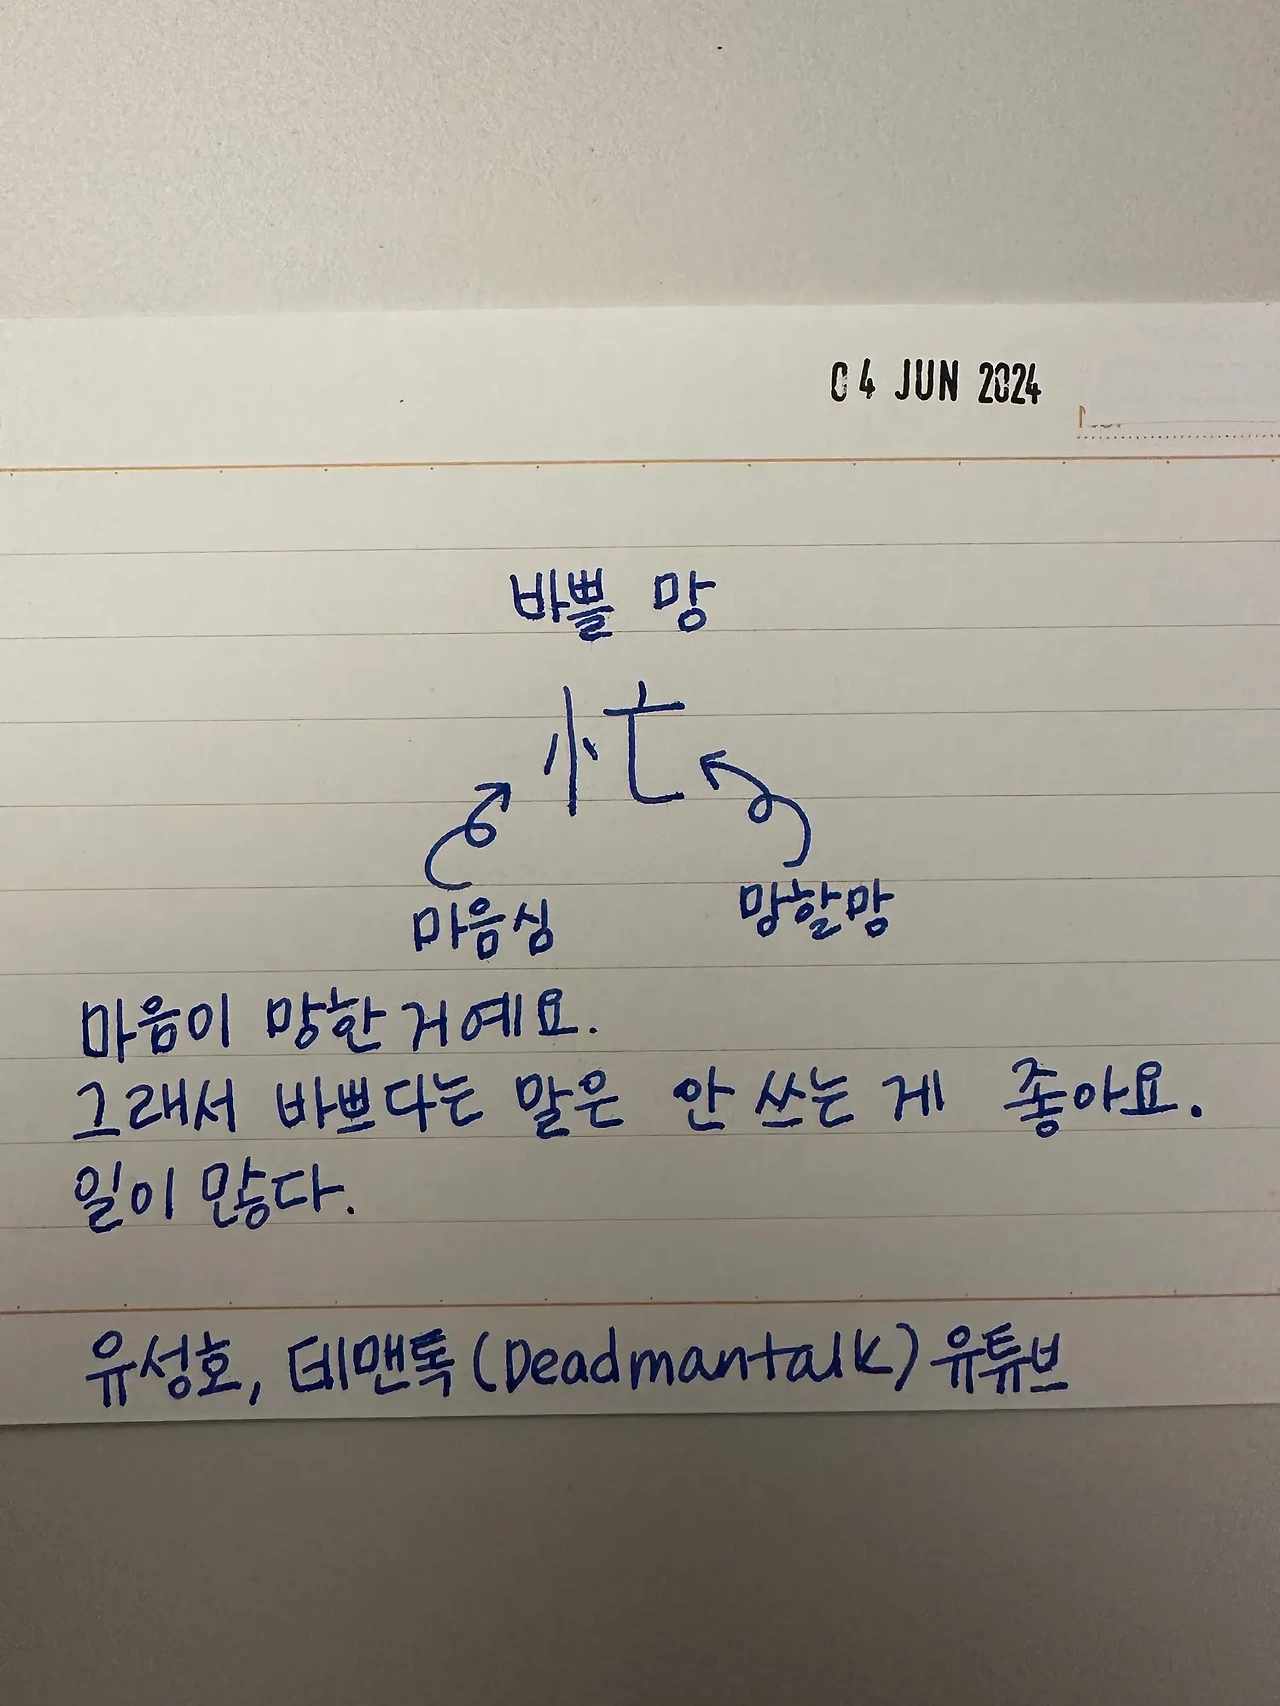 04 JUN 2024
바쁠 망
忙
마음심 망할망
마음이 망한 거예요.
그래서 바쁘다는 말은 안 쓰는 게 좋아요.
일이 많다.
유성호, 데맨톡 (Deadmantalk) 유튜브